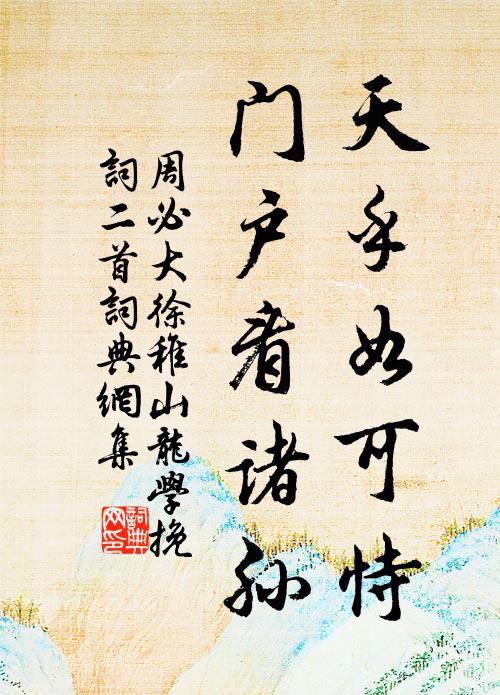 天乎如可恃
门户看诸孙
周必大徐稚山龍學挽
詞二首詞典網集
詞典网印